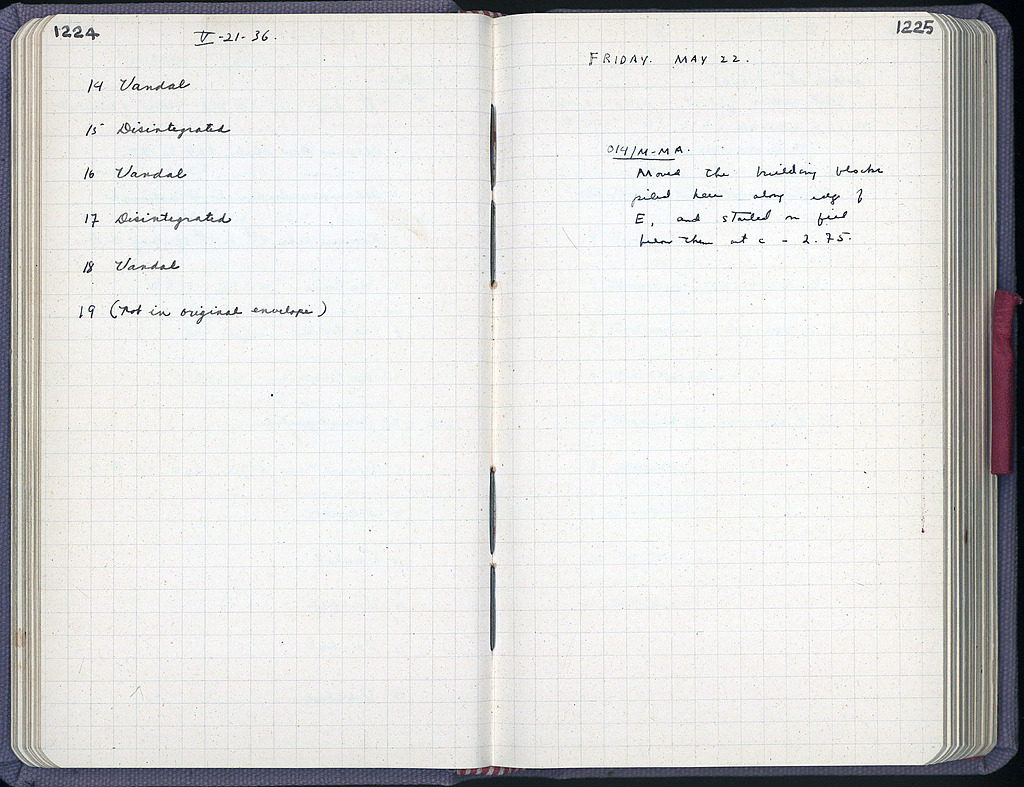 1224
V-21-36.
14 Vandal
15 Disintegrated
16 Vandal
17 Disintegrated
18 Vandal
19 (Not in original envelope)
1225
FRIDAY. MAY 22.
O14/M-MA.
Moved the building blocks
piled here along edge of
E, and started on field
below them at c - 2.75.